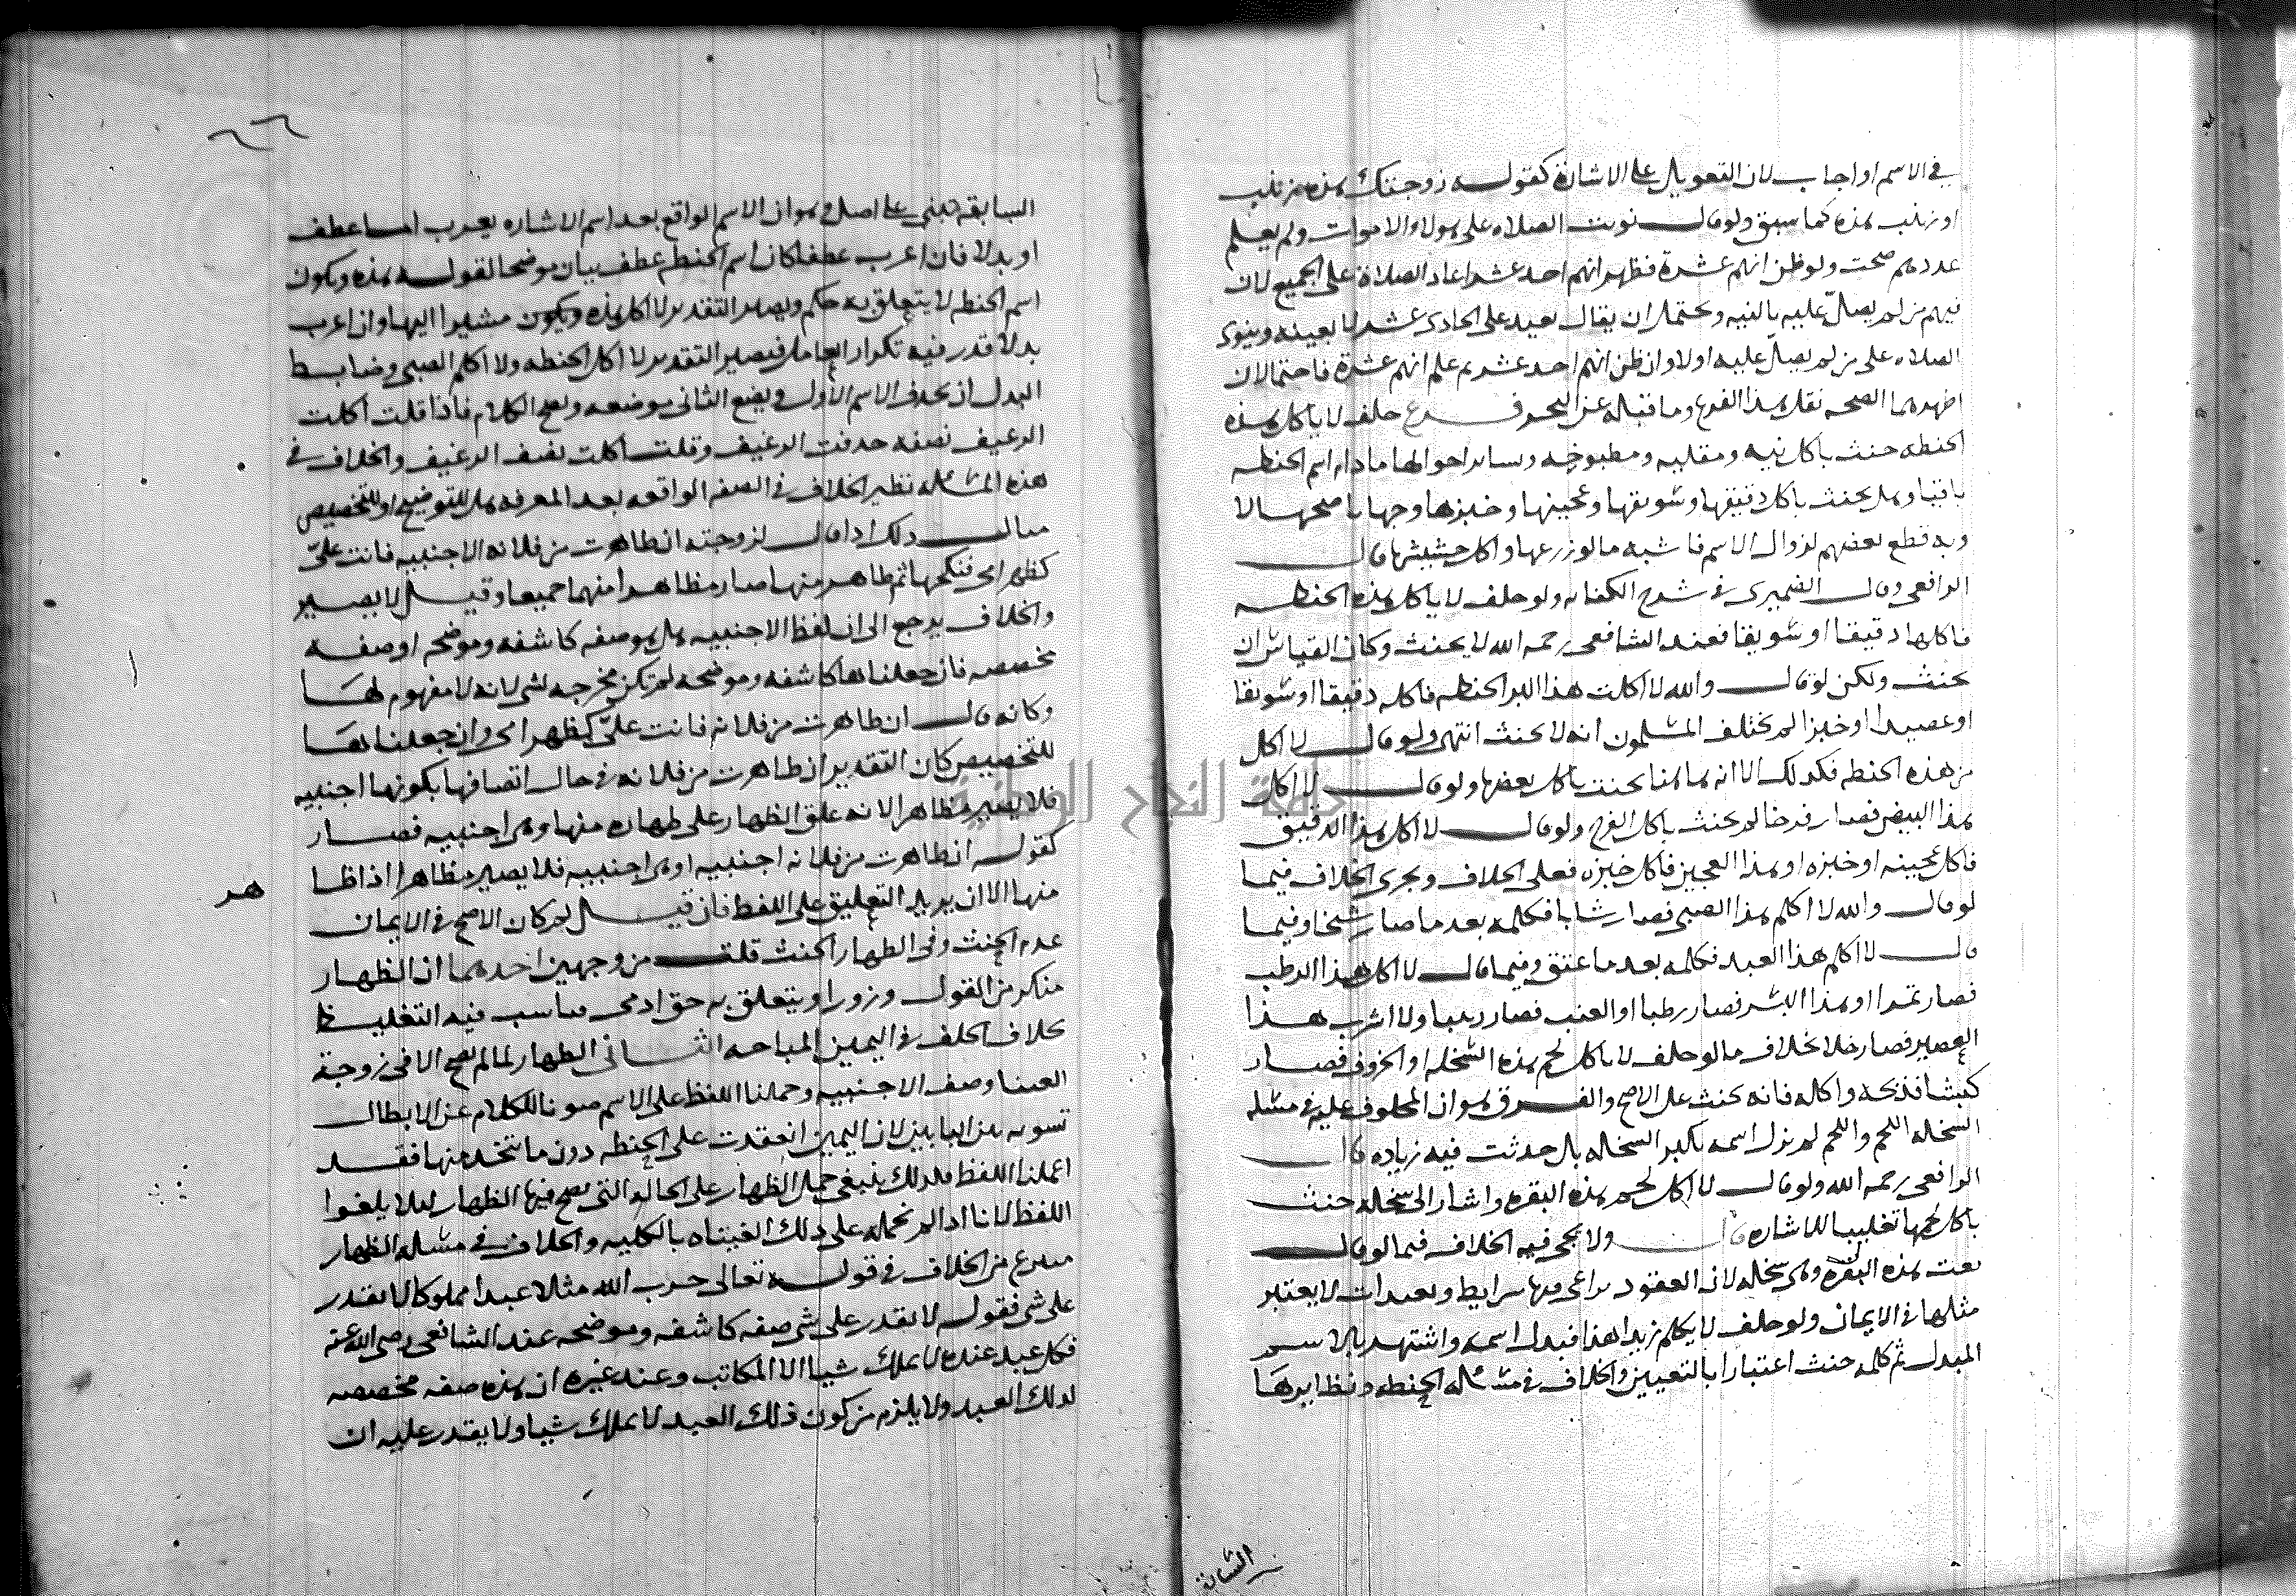 في الاسم او اجاب لان التعويل على الاشارة كقوله زوجتك هذه زينب
او زينب هذه كما سبق ولو قال نويت الصلاه على هولاء الاموات ولم يعلم
عددهم صحت ولو ظن انهم عشرة فظهر انهم احد عشر اعاد الصلاة على الجميع لان
فيهم من لم يصلّ عليه بالنيه ويحتمل ان يقال يعيد على الحادى عشر لا بعينه وينوى
الصلاه على من لم يصلّ عليه اولا وان ظن انهم احد عشر ثم علم انهم عشرة فاحتمالان
اظهرهما الصحه نقل هذا الفرع وما قبله عن البحر فرع حلف لا ياكل هذه
الحنطه حنث باكل نيه ومقليه ومطبوخه وساير احوالها مادام اسم الحنطه
باقيا وهل يحنث باكل دقيقها وسويقها وعجينها وخبزها وجهان اصحهما لا
وبه قطع بعضهم لزوال الاسم فاشبه ما لو زرعها واكل حشيشها قال
الرافعى وقال الصميرى في شرح الكفايه ولو حلف لا ياكل هذه الحنطه
فاكلها دقيقا او سويقا فعند الشافعى رحمه الله لا يحنث وكان القياس ان
يحنث ولكن لو قال والله لا اكلت هذا البر الحنطه فاكله دقيقا او سويقا
او عصيدا او خبزا لم يختلف المسلمون انه لا يحنث انتهى ولو قال لا اكل
من هذه الحنطه فكذلك الا انه هاهنا يحنث باكل بعضها ولو قال لا اكل
هذا البيض فصار فرخا لم يحنث باكل الفرخ ولو قال لا اكل هذا الدقيق
فاكل عجينه او خبزه او هذا العجين فاكل خبزه فعلى الخلاف ويجرى الخلاف فيما
لو قال والله لا اكلم هذا الصبى فصار شابا فكلمه بعد ما صار شيخا وفيما
قال لا اكلم هذا العبد فكلمه بعد ما عتق وفيما قال لا اكل هذا الرطب
فصار تمرا او هذا البسر فصار رطبا او العنب فصار زبيبا ولا اشرب هذا
العصير فصار خلا بخلاف ما لو حلف لا ياكل لحم هذه السخله او الخروف فصار
كبشا فذبحه واكله فانه يحنث على الاصح والفرق هو ان المحلوف عليه في مسله
السخله اللحم واللحم لم يزل اسمه بكبر السخله بل حدثت فيه زياده قال
الرافعى رحمه الله ولو قال لا اكل لحم هذه البقره واشار الى سخله حنث
باكل لحمها تغليبا للاشاره قال ولا يجى فيه الخلاف فيما لو قال
بعت هذه البقره وهى سخله لان العقود يراعى فيها شرايط وتعبدات لا يعتبر
مثلها في الايمان ولو حلف لا يكلم زيدا هذا فبدل اسمه واشتهر بالاسم
المبدل ثم كلمه حنث اعتبارا بالتعيين والخلاف في مسئله الحنطه ونظايرها
السابقه
٦٦
السابقه مبنى على اصل وهو ان الاسم الواقع بعد اسم الاشاره يعرب اما عطف
او بدلا فان اعرب عطفا كان اسم الحنطه عطف بيان موضحا لقوله هذه ويكون
اسم الحنطه لا يتعلق به حكم ويصير التقدير لا اكل هذه ويكون مشيرا اليها وان اعرب
بدلا قدر فيه تكرار العامل فيصير التقدير لا اكل الحنطه ولا اكلم الصبى وضابط
البدل ان يحذف الاسم الاول ويضع الثانى موضعه ويصح الكلام فاذا قلت اكلت
الرغيف نصفه حذفت الرغيف وقلت اكلت نصف الرغيف والخلاف في
هذه المسئله نظير الخلاف في الصفه الواقعه بعد المعرفه هل للتوضيح او للتخصيص
مثال ذلك اذا قال لزوجته ان ظاهرت من فلانه الاجنبيه فانت علىّ
كظهر امى فنكحها ثم ظاهر منها صار مظاهرا منهما جميعا وقيل لا يصير
والخلاف يرجع الى ان لفظ الاجنبيه هل هو صفه كاشفه وموضحه او صفه
مخصصه فان جعلناها كاشفه وموضحه لم تكن مخرجه لشى لانه لا مفهوم لها
وكانه قال ان ظاهرت من فلانه فانت علىّ كظهر امى وان جعلناها
للتخصيص كان التقدير ان ظاهرت من فلانه في حال اتصافها بكونها اجنبيه
فلا يصير مظاهرا لانه علق الظهار على ظهاره منها وهى اجنبيه فصار
كقوله ان ظاهرت من فلانه اجنبيه او وهى اجنبيه فلا يصير مظاهرا اذا ظا
هر
منها الا ان يريد التعليق على اللفظ فان قيل لم كان الاصح في الايمان
عدم الحنث وفى الظهار الحنث قلت من وجهين احدهما ان الظهار
منكر من القول وزورا ويتعلق به حق ادمى فناسب فيه التغليظ
بخلاف الحلف في اليمين المباحه الثانى الظهار لما لم يصح الا في زوجة
الغينا وصف الاجنبيه وحملنا اللفظ على الاسم صونا للكلام عن الابطال
تسويه بين البابين لان اليمين انعقدت على الحنطه دون ما يتخذ منها فقد
اعملنا اللفظ فلذلك ينبغى حمل الظهار على الحاله التى يصح فيها الظهار ليلا يلغوا
اللفظ لانا اذا لم نحمله على ذلك الغيناه بالكليه والخلاف في مسله الظهار
مفرع من الخلاف في قوله تعالى ضرب الله مثلا عبدا مملوكا لا يقدر
على شى فقوله لا يقدر على شى صفه كاشفه وموضحه عند الشافعى رضى الله عنه
فكل عبد عنده لا يملك شيا الا المكاتب وعند غيره ان هذه صفه مخصصه
لذلك العبد ولا يلزم من كون ذلك العبد لا يملك شيا ولا يقدر عليه ان
جامعة النجاح الوطنية